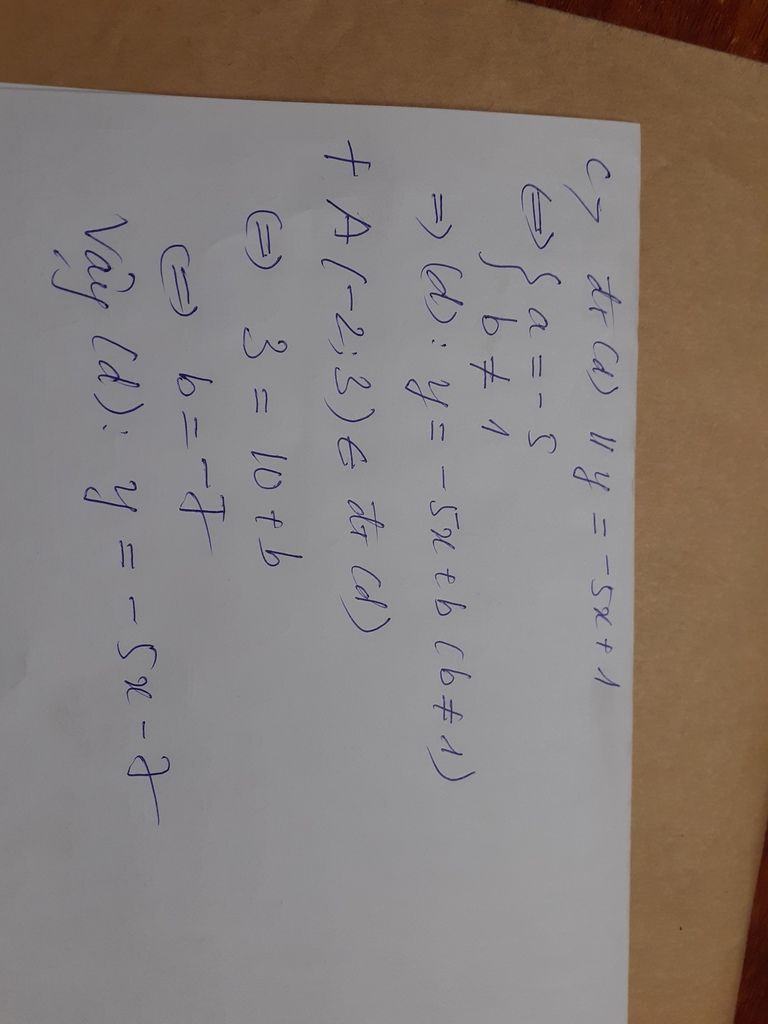 c> đt (d) // y = -5x + 1
<=> { a = -5
b ≠ 1
=> (d): y = -5x + b (b ≠ 1)
+ A(-2; 3) ∈ đt (d)
<=> 3 = 10 + b
<=> b = -7
Vậy (d): y = -5x - 7